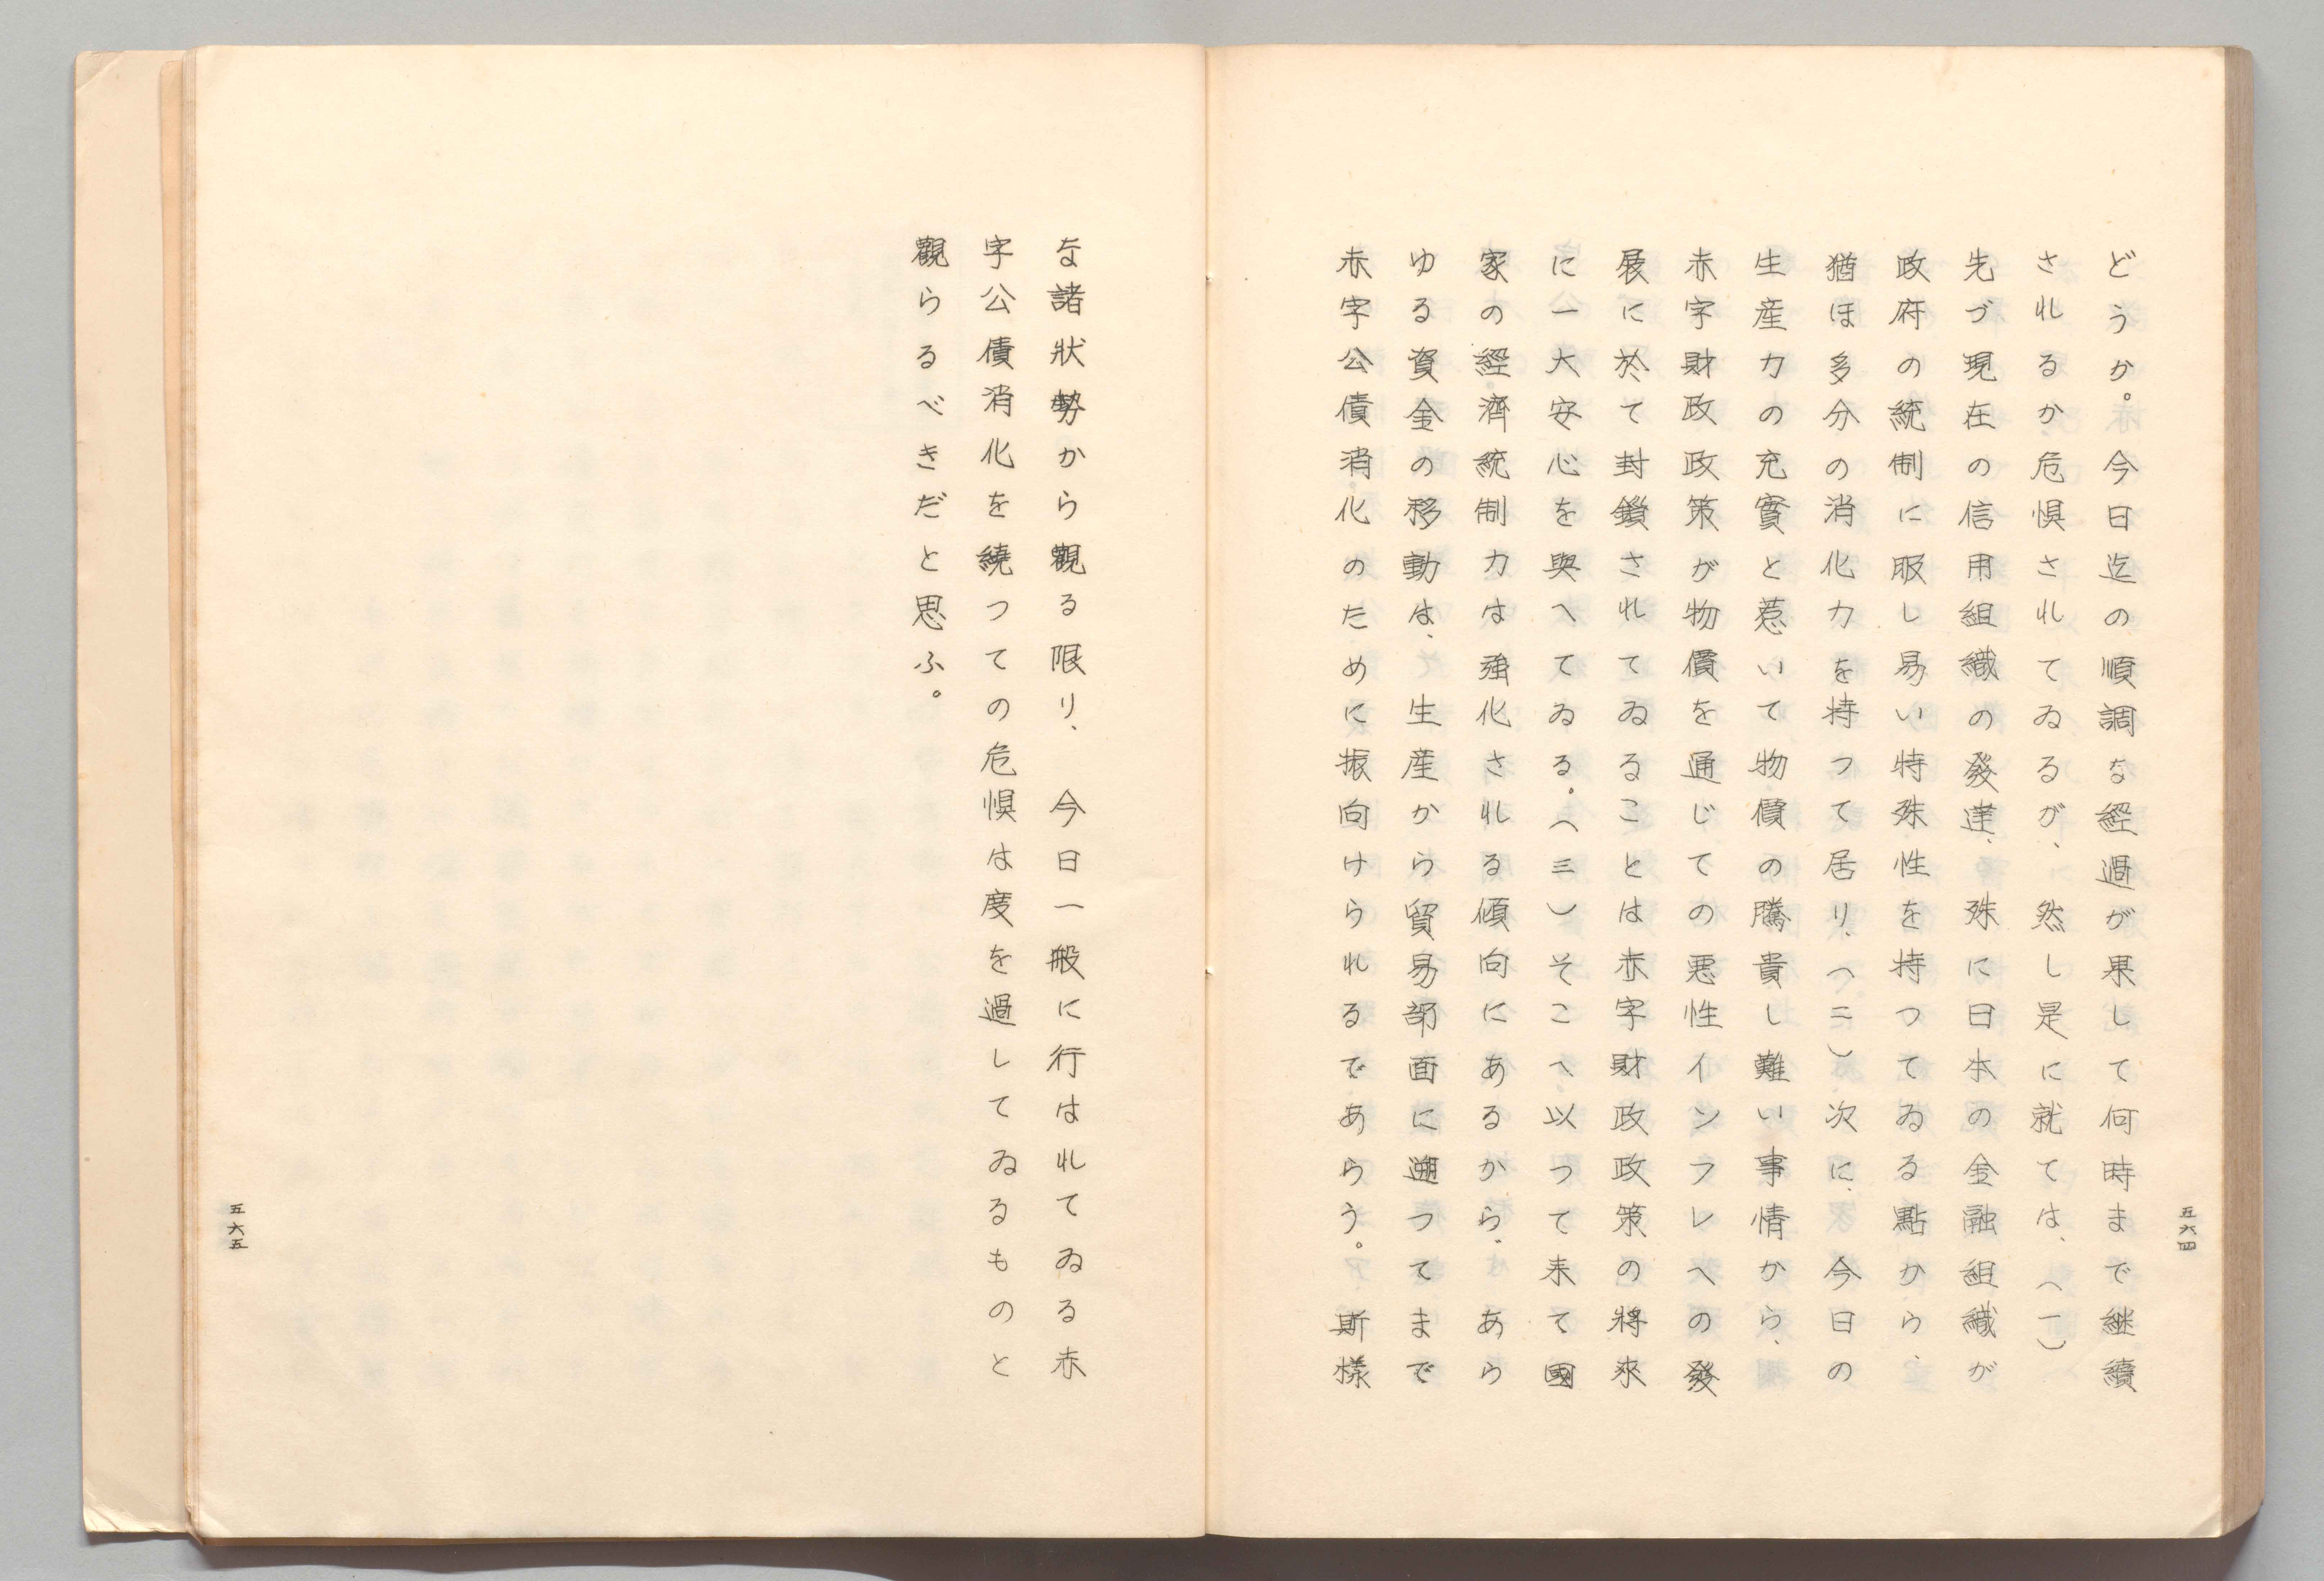 どうか。今日迄の順調な経過が果して何時まで継續
されるか危惧されてゐるが、然し是に就ては、(一)
先づ現在の信用組織の發達、殊に日本の金融組織が
政府の統制に服し易い特殊性を持つてゐる點から、
猶ほ多分の消化力を持つて居り、(二)次に、今日の
生産力の充實と惹いて物價の騰貴し難い事情から、
赤字財政政策が物價を通じての悪性インフレへの發
展に於て封鎖されてゐることは赤字財政政策の將來
に一大安心を與へてゐる。(三)そこへ以つて来て國
家の經濟統制力は强化される傾向にあるから、あら
ゆる資金の移動は、生産から貿易部面に遡つてまで
赤字公債消化のために振向けられるであらう。斯樣
五六四
な諸狀勢から觀る限り、今日一般に行はれてゐる赤
字公債消化を繞つての危惧は度を過してゐるものと
觀らるべきだと思ふ。
五六五